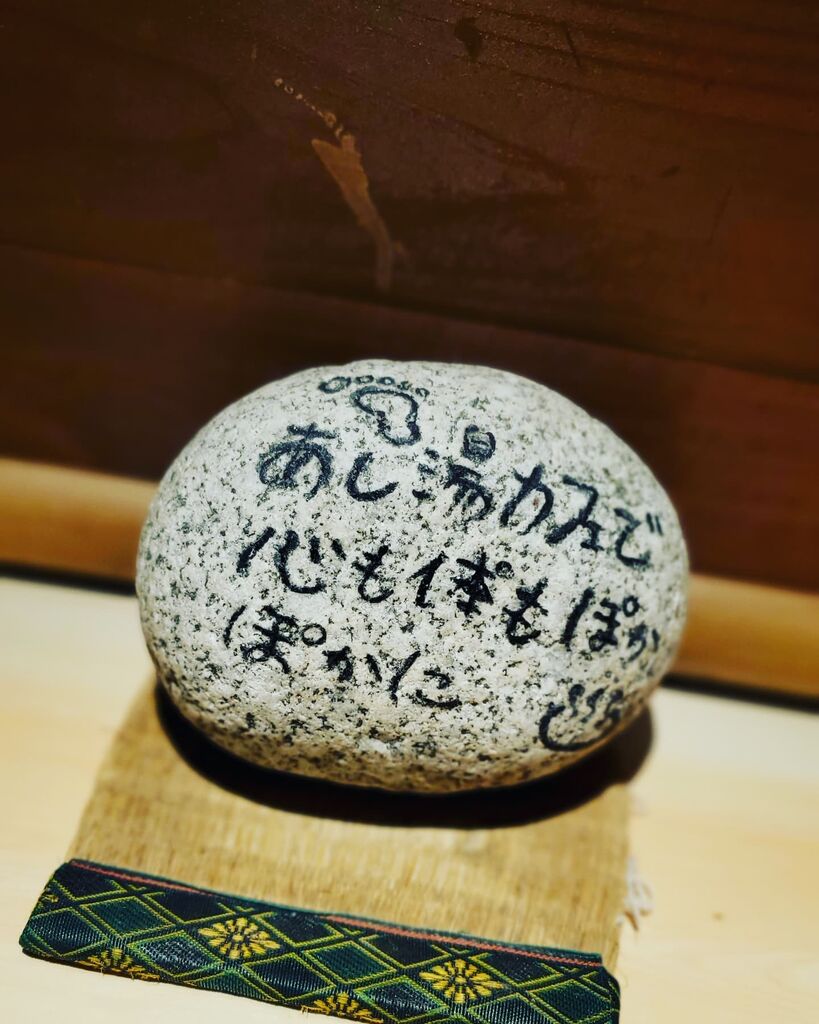 あし湯カフェで
心も体もぽか
ぽかに